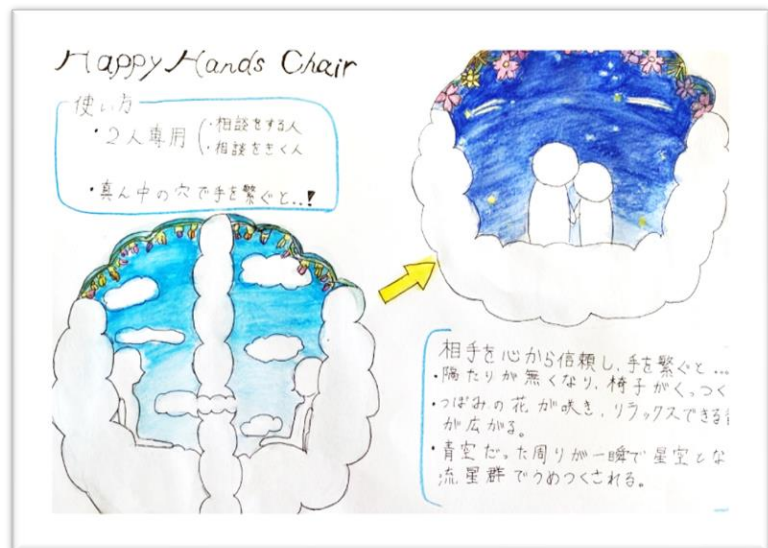 Happy Hands Chair
使い方
・2人専用(・相談をする人
・相談をきく人
・真ん中の穴で手を繋ぐと..!
相手を心から信頼し、手を繋ぐと...
・隔たりが無くなり、椅子がくっつく
・つぼみの花が咲き、リラックスできる
が広がる。
・青空だった周りが一瞬で星空とな
流星群でうめつくされる。